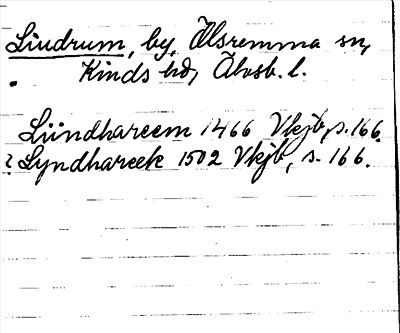 Lindrum, by, Ölsremma sn,
Kinds hd, Älvsb. l.
Lündhareem 1466 Vkjb, s. 166.
? Lyndhareek 1502 Vkjb, s. 166.